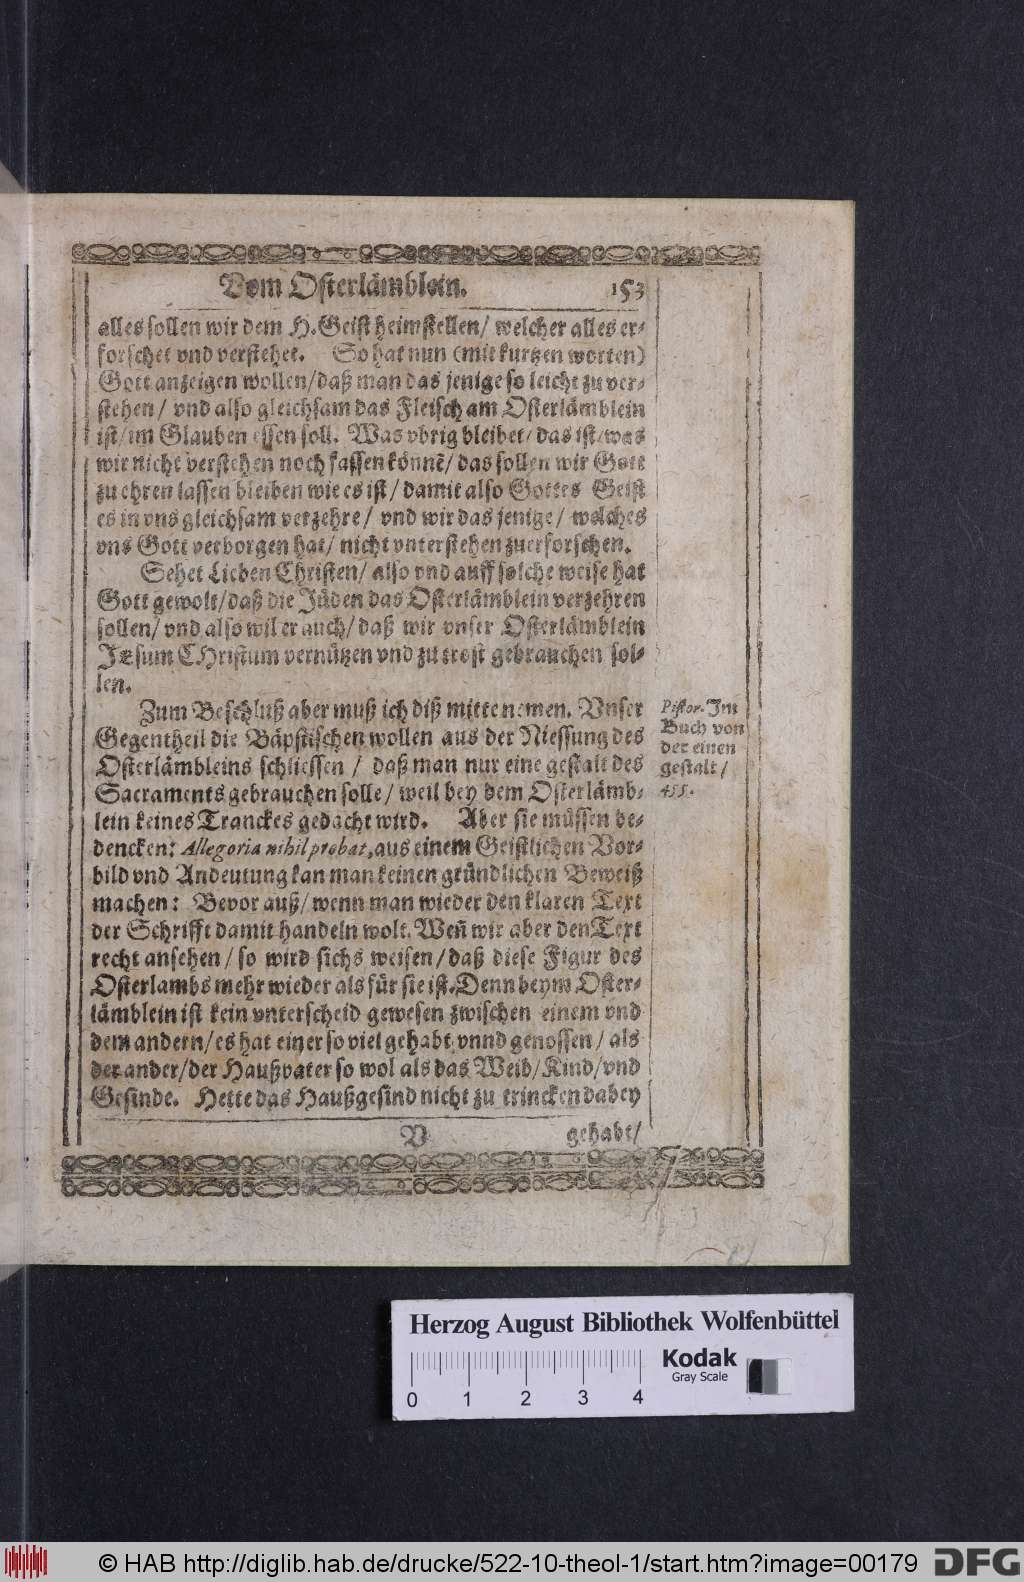 Vom Osterlämblein. 153
alles sollen wir dem H. Geist heimstellen/ welcher alles er-
forschet vnd verstehet. So hat nun (mit kurtzen worten)
Gott anzeigen wollen/ daß man das jenige so leicht zu ver-
stehen/ vnd also gleichsam das Fleisch am Osterlämblein
ist/ im Glauben essen soll. Was vbrig bleibet/ das ist/ was
wir nicht verstehen noch fassen könnē/ das sollen wir Gott
zu ehren lassen bleiben wie es ist/ damit also Gottes Geist
es in vns gleichsam verzehre/ vnd wir das jenige/ welches
vns Gott verborgen hat/ nicht vnterstehen zuerforschen.
Sehet Lieben Christen/ also vnd auff solche weise hat
Gott gewolt/ daß die Jüden das Osterlämblein verzehren
sollen/ vnd also wil er auch/ daß wir vnser Osterlämblein
JEsum CHristum vernützen vnd zu trost gebrauchen sol-
len.
Zum Beschluß aber muß ich diß mitte nemen. Vnser
Gegentheil die Bäpstischen wollen aus der Niessung des
Osterlämbleins schliessen/ daß man nur eine gestalt des
Sacraments gebrauchen solle/ weil bey dem Osterlämb-
lein keines Tranckes gedacht wird. Aber sie müssen be-
dencken: Allegoria nihil probat, aus einem Geistlichen Vor-
bild vnd Andeutung kan man keinen gründlichen Beweiß
machen: Bevor auß/ wenn man wieder den klaren Text
der Schrifft damit handeln wolt. Weñ wir aber den Text
recht ansehen/ so wird sichs weisen/ daß diese Figur des
Osterlambs mehr wieder als für sie ist. Denn beym Oster-
lämblein ist kein vnterscheid gewesen zwischen einem vnd
dem andern/ es hat einer so viel gehabt vnnd genossen/ als
der ander/ der Haußvater so wol als das Weib/ Kind/ vnd
Gesinde. Hette das Haußgesind nicht zu trincken dabey
V gehabt/
Pistor. Im
Buch von
der einen
gestalt/
455.
Herzog August Bibliothek Wolfenbüttel
Kodak
Gray Scale
0 1 2 3 4
© HAB http://diglib.hab.de/drucke/522-10-theol-1/start.htm?image=00179
DFG